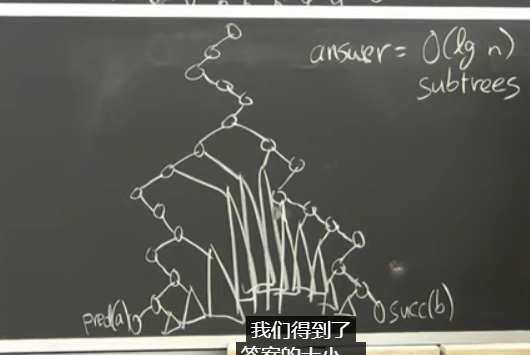 answer = O(lg n)
subtrees
pred(a)
succ(b)
我们得到了
答案的大小